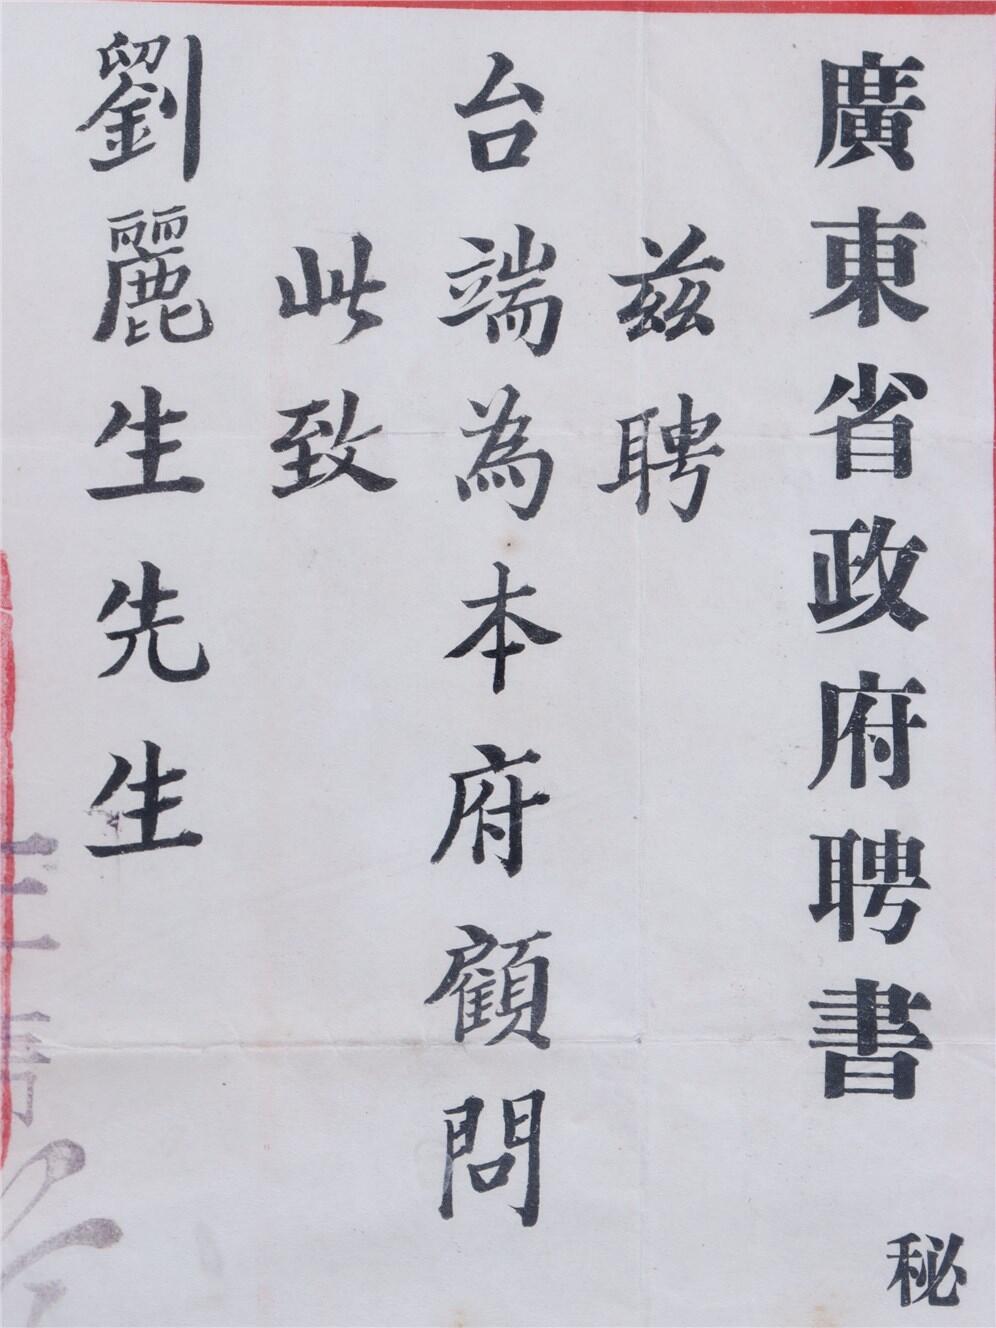 廣東省政府聘書
秘
茲聘
台端為本府顧問
此致
劉麗生先生